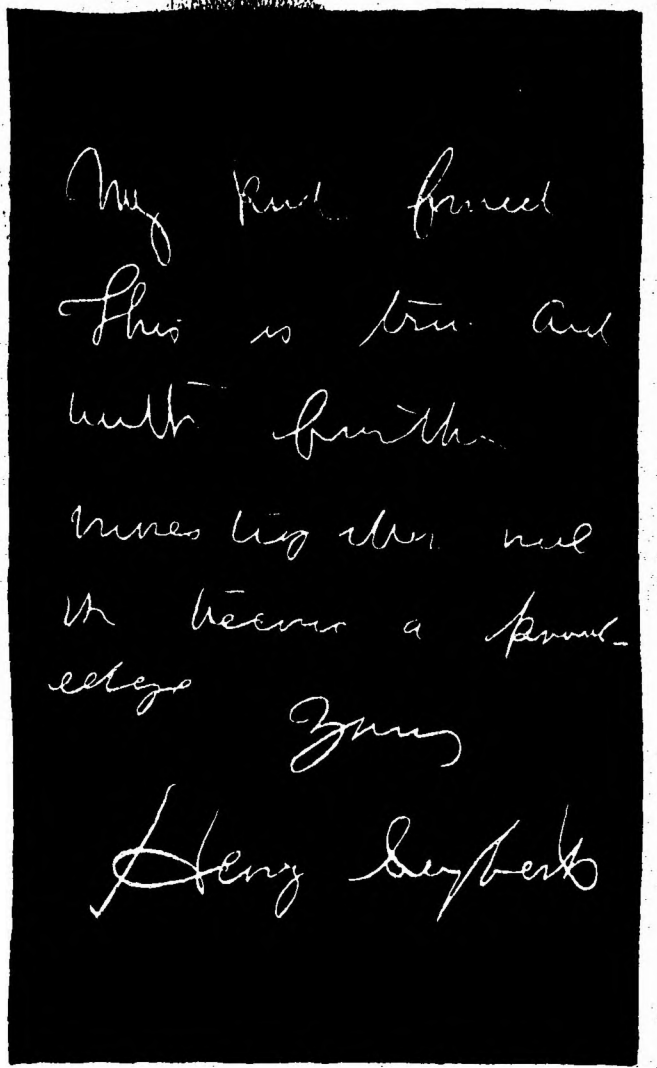 My kind friend
This is true and
with further
investigation will
be become a knowl-
edge
Yours
Henry Seybert